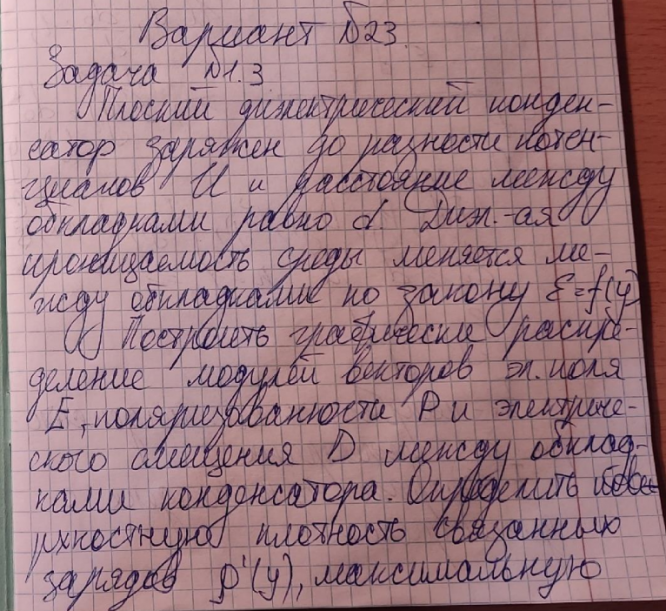 Вариант №23
Задача №1.3
Плоский диэлектрический конден-
сатор заряжен до разности потен-
циалов U и расстояние между
обкладками равно d. Диэл.-ая
проницаемость среды меняется ме-
жду обкладками по закону ε=f(y)
Построить графически распре-
деление модулей векторов эл. поля
E, поляризованности P и электриче-
ского смещения D между обклад-
ками конденсатора. Определить пове-
рхностную плотность связанных
зарядов ρ'(y), максимальную